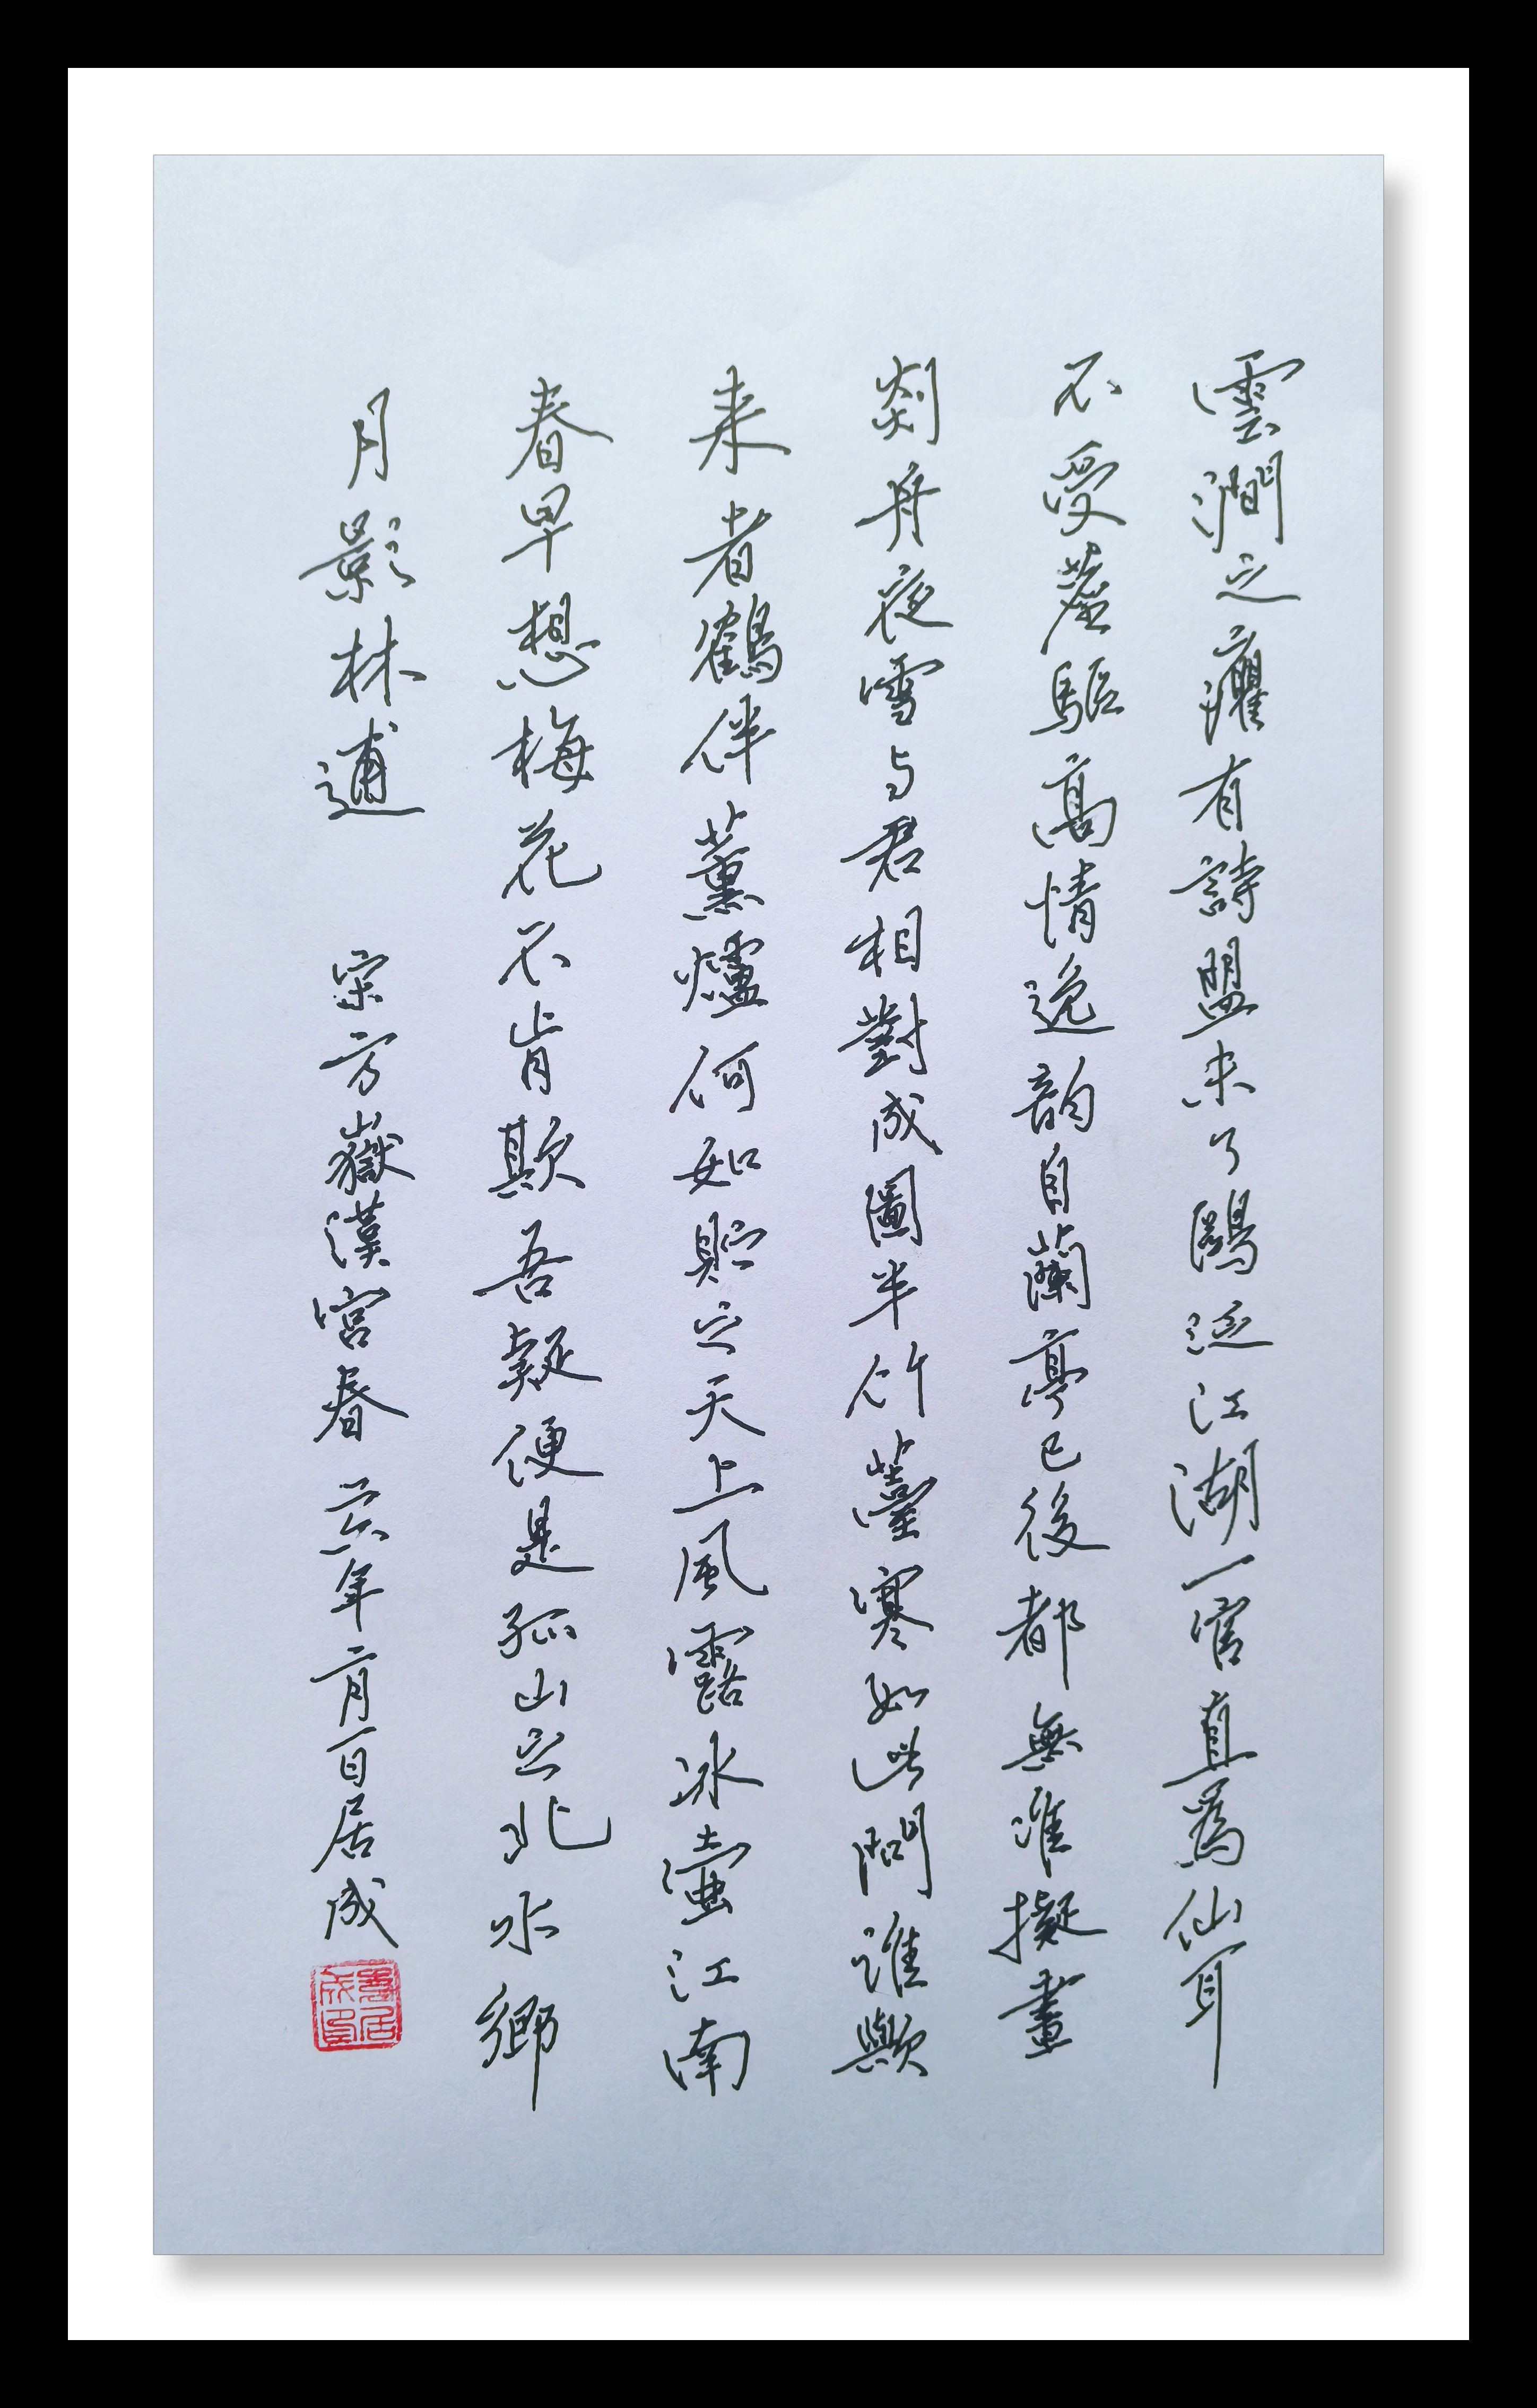 雲澗之癯有詩盟未了鷗江湖一官直爲仙耳
不受塵驅高情逸韵自蘭亭已後都無准擬畫
剡舟夜雪与君相對成圖半竹薹寒如此問誰歟
来者鶴伴薰爐何如貯之天上風露冰壺江南
春早想梅花不肯欺吾疑便是孤山之北水鄉
月影林逋 宋方嶽漢宮春 二六年二月一日居成